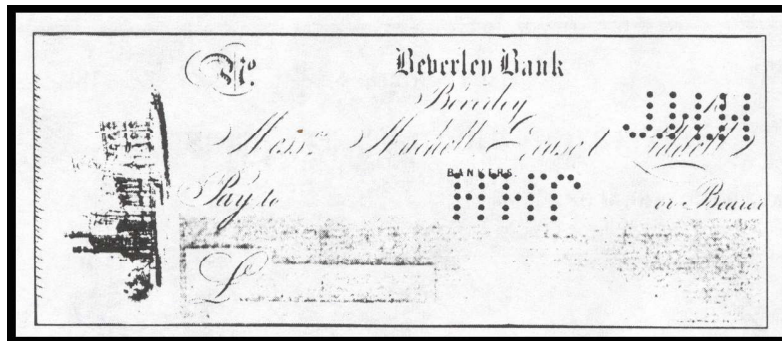 No. Beverley Bank
Beverley
Messrs. Machell, Pease & Liddell
BANKERS.
Pay to or Bearer
£